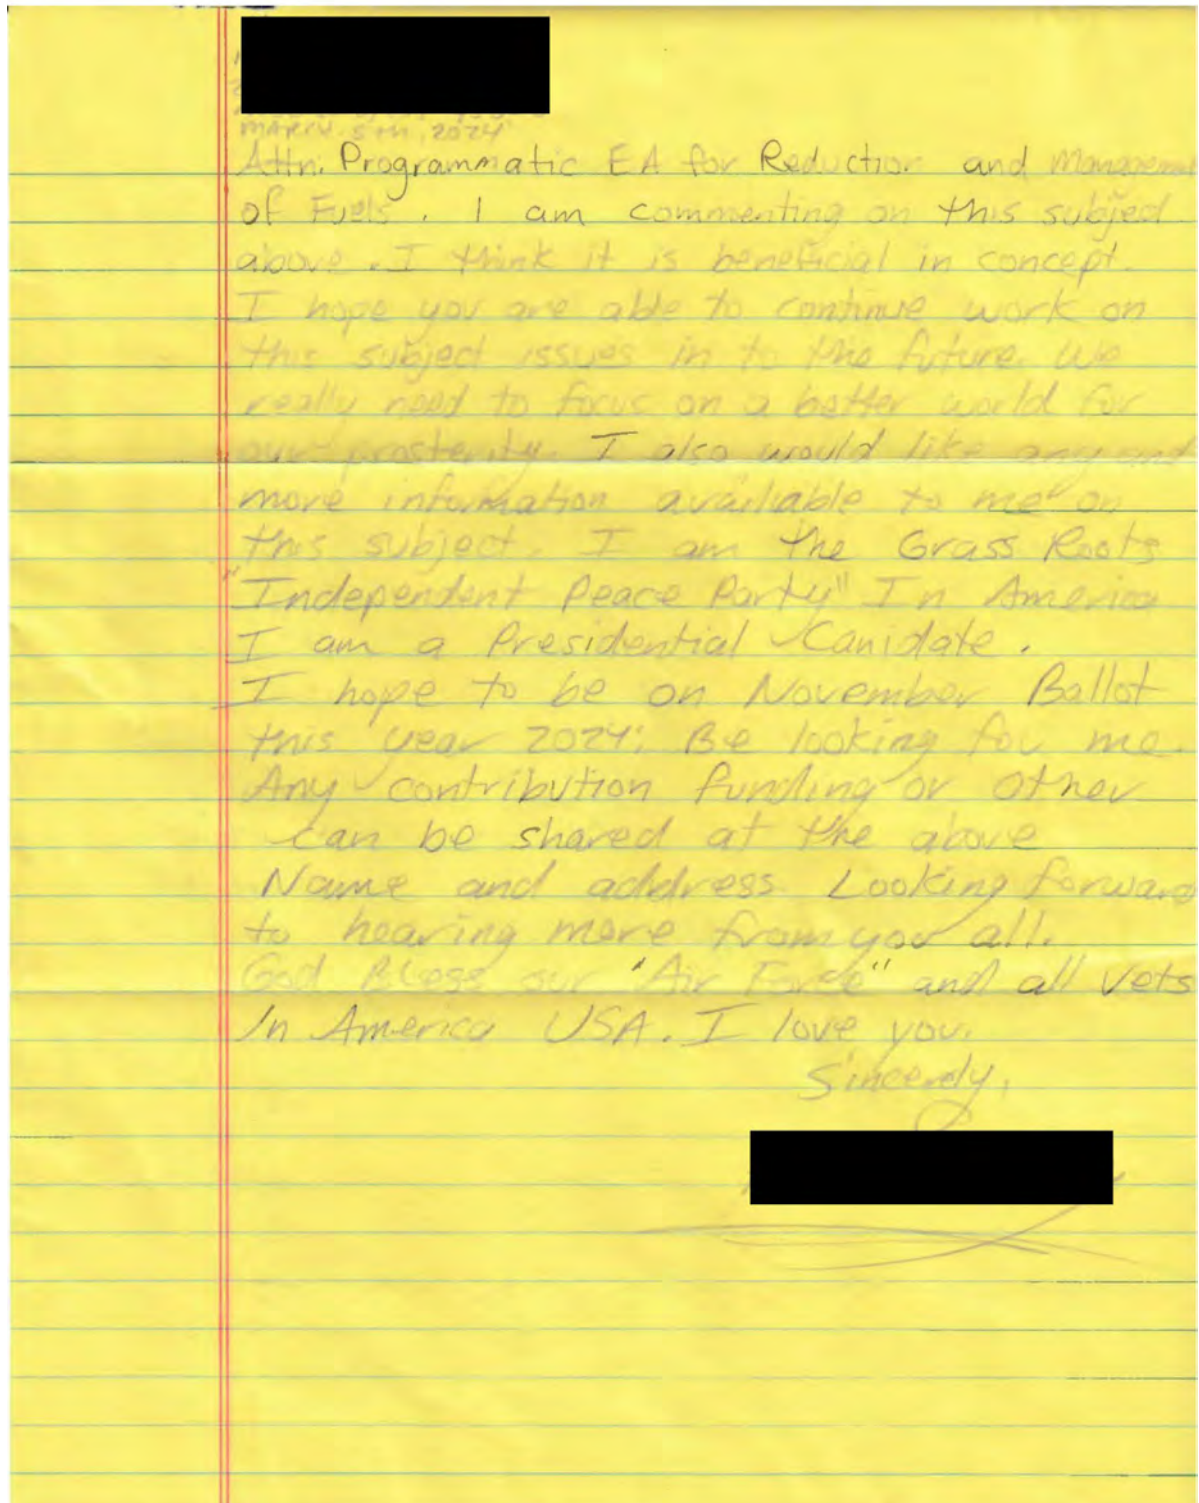 MARCH 5TH, 2024
Attn: Programmatic EA for Reduction and Management
of Fuels. I am commenting on this subject
above. I think it is beneficial in concept.
I hope you are able to continue work on
this subject issues in to the future. We
really need to focus on a better world for
our prosterity. I also would like any and
more information available to me on
this subject. I am the Grass Roots
"Independent Peace Party" In America
I am a Presidential Canidate.
I hope to be on November Ballot
this year 2024; Be looking for me.
Any contribution funding or other
can be shared at the above
Name and address Looking forward
to hearing more from you all.
God Bless our "Air Force" and all Vets
In America USA. I love you.
Sincerely,